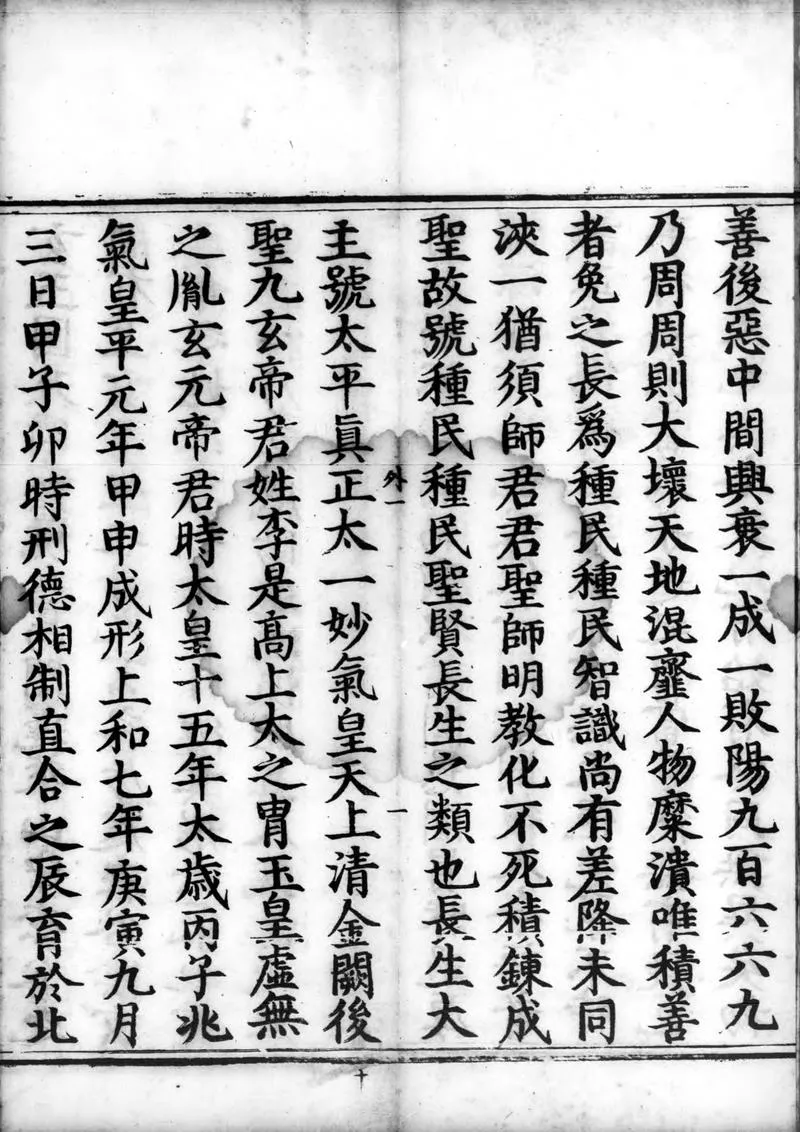 善後惡中間興衰一成一敗陽九百六六九
乃周周則大壞天地混齏人物糜潰唯積善
者免之長爲種民種民智識尚有差降未同
浹一猶須師君君聖師明教化不死積鍊成
聖故號種民種民聖賢長生之類也長生大
外一
一
主號太平眞正太一妙氣皇天上清金闕後
聖九玄帝君姓李是高上太之冑玉皇虛無
之胤玄元帝君時太皇十五年太歲丙子兆
氣皇平元年甲申成形上和七年庚寅九月
三日甲子卯時刑德相制直合之辰育於北
十